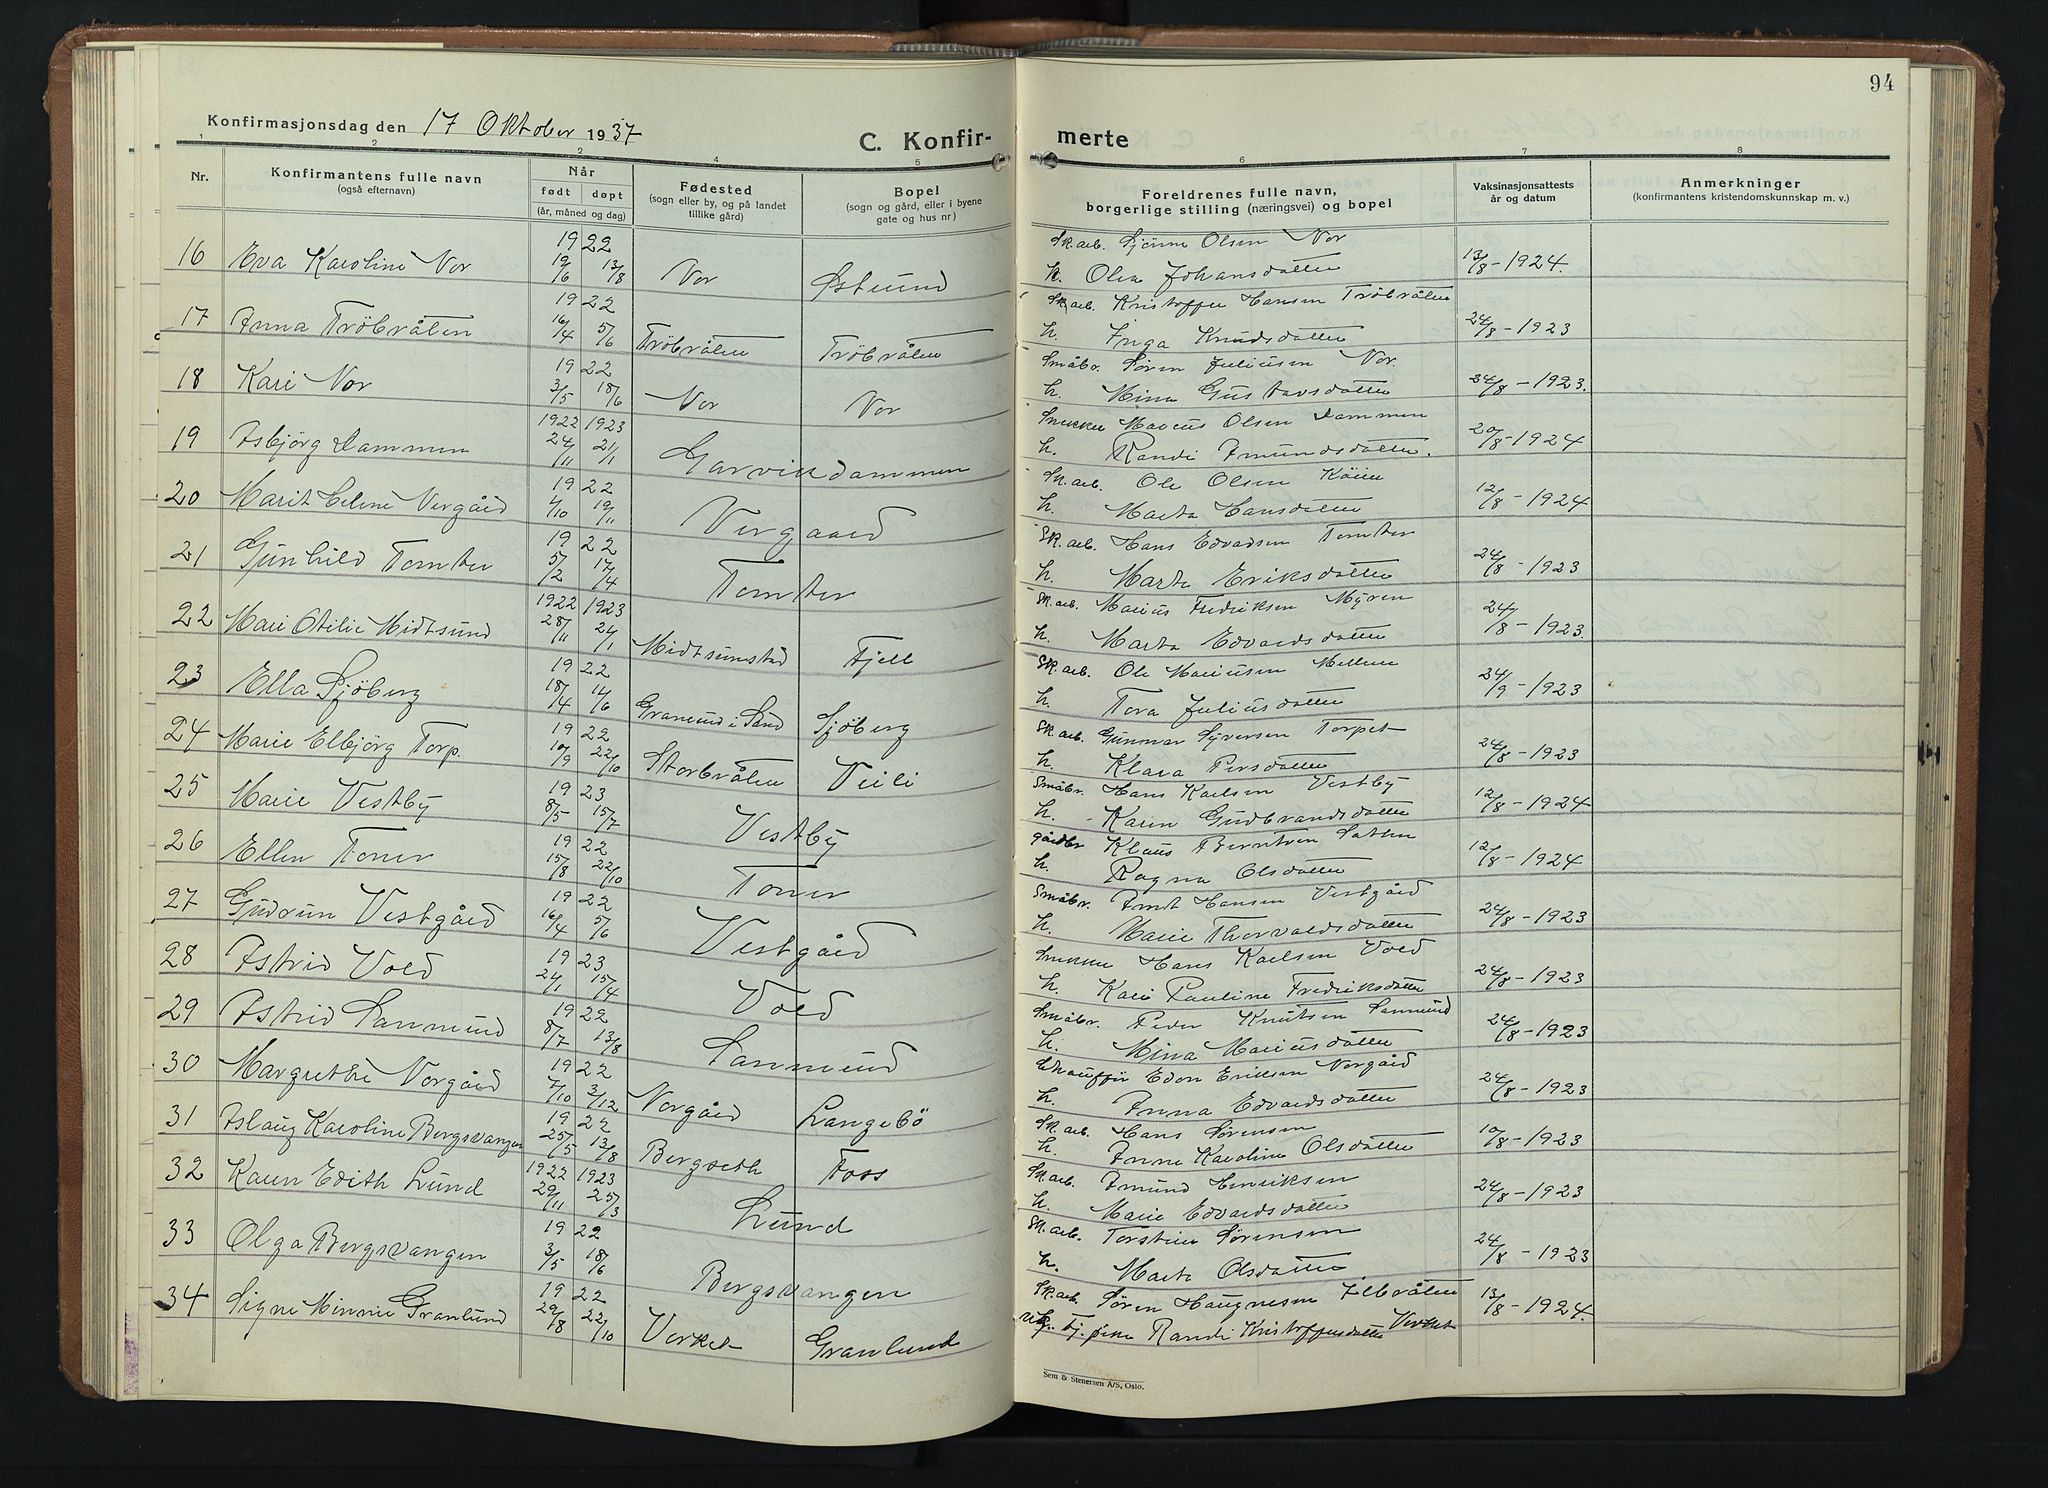 94
Konfirmasjonsdag den 17 Oktober 1937
C. Konfir-
merte
1 2 2 4 5 6 7 8
Nr.
Konfirmantens fulle navn
(også efternavn)
Når
født døpt
(år, måned og dag)
Fødested
(sogn eller by, og på landet
tillike gård)
Bopel
(sogn og gård, eller i byene
gate og hus nr)
Foreldrenes fulle navn,
borgerlige stilling (næringsvei) og bopel
Vaksinasjonsattests
år og datum
Anmerkninger
(konfirmantens kristendomskunnskap m. v.)
1922 Sk. arb. Olsen Nor
16 Eva Karoline Nor 19/6 13/8 Nor Østlund h. Olea Johansdatter 13/8-1924.
1922 Sk. arb. Kristoffer Hansen Tröbråten
17 Anna Tröbråten 16/4 5/6 Tröbråten Tröbråten h. Inga Knudsdatter 24/8-1923
1922 Småbr. Søren Juliussen Nor.
18 Kari Nor 3/5 18/6 Nor Nor h. Mina Gustavsdatter 24/8-1923.
1922 1923 Snekker Marius Olsen Dammen
19 Asbjörg Dammen 24/11 21/1 Garviksdammen h. Randi Amundsdatter. 20/8-1924
1922 Sk. arb. Ole Olsen Köien
20 Marit Helene Vergård 4/10 19/11 Vergaard h. Marta Hansdatter 12/8-1924
1922 Sk. arb. Hans Edvadsen Tomter
21 Gunhild Tomter 5/2 17/4 Tomter h. Marta Eriksdatter 24/8-1923
1922 1923 Sk. arb. Marius Fredriksen Myren
22 Mari Otilie Midtsund 28/11 21/1 Midtsunstad Fjell h. Marta Edvardsdatter 24/8-1923.
1922 Sk. arb. Ole Mariusen Mellem
23 Ella Sjöberg 18/4 11/6 Granlund i Sand Sjöberg h. Tora Juliusdatter 24/9-1923
1922 Sk. arb. Gunnar Syversen Torpet
24 Marie Elbjörg Torp. 10/9 22/10 Storbråten Veili h. Klara Persdatter 24/8-1923
1923 Småbr. Hans Karlsen Vestby
25 Marie Vestby 8/5 15/7 Vestby h. Karen Gudbrandsdatter 12/8-1924
1922 gårdbr Klaus Berntsen
26 Ellen Toner 15/8 22/10 Toner h. Ragna Olsdatter 12/8-1924
1922 Småbr. Arndt Hansen Vestgård
27 Gudrun Vestgård 16/4 5/6 Vestgård h. Marie Thorvaldsdatter 24/8-1923
1923 Snekker Hans Karlsen Vold
28 Astrid Vold 24/1 15/4 Vold h. Kari Pauline Fredriksdatter 24/8-1923
1922 Småbr. Peder Knutsen Sanmund
29 Astrid Sanmund 8/7 13/8 Sanmund h. Mina Mariusdatter 24/8-1923
1922 Edon Eriksen Norgård
30 Margrethe Norgård 7/10 3/12 Norgård Langebö h. Anna Edvardsdatter 24/8-1923
1922 Sk. arb. Hans Sørensen
31 Aslaug Karoline Bergsvangen 25/5 13/8 Bergseth Foss h. Anne Karoline Olsdatter 10/8-1923
1922 1923 Sk. arb. Amund Henriksen
32 Karen Edith Lund 29/11 25/3 Lund h. Marie Edvardsdatter 24/8-1923
1922 Sk. arb. Torstein Sørensen
33 Olga Bergsvangen 3/5 18/6 Bergsvangen h. Marta Olsdatter 24/8-1923
1922 Sk. arb. Søren Haugnesen
34 Signe Minnie Granlund 29/8 22/10 Verket Granlund Randi Kristoffersdatter Verket 13/8-1924.
Sem & Stenersen A/S, Oslo.